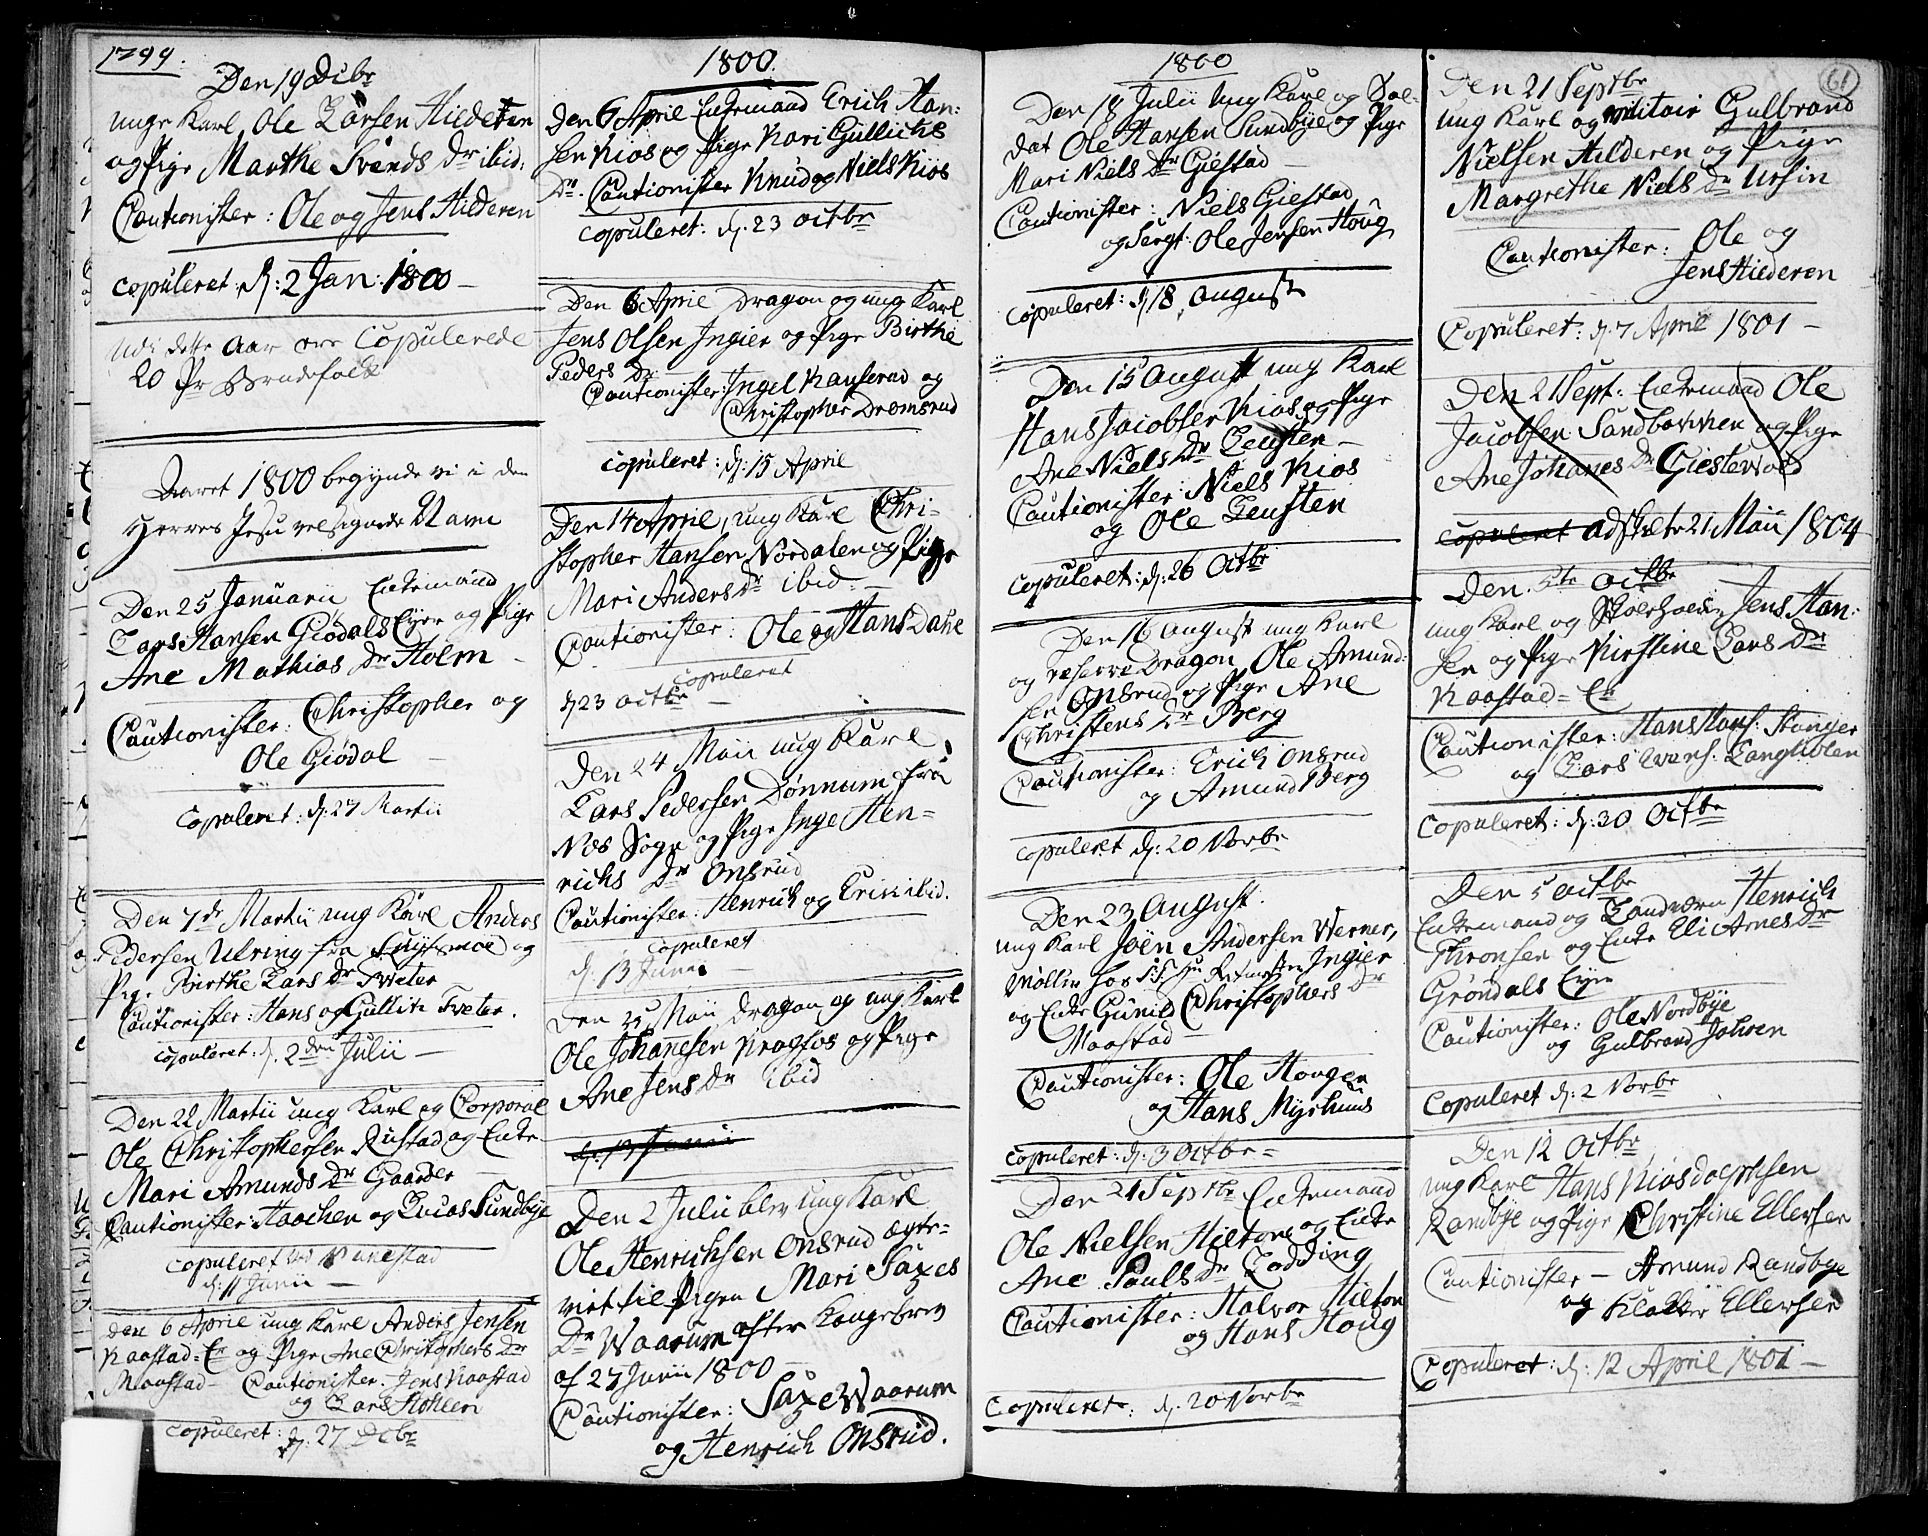 1799.
Den 19 Dcbr
unge Karl Ole Larsen Hilderen
og Pige Marthe Svends Dr ibid:
Cautionister: Ole og Jens Hilderen
copuleret: d: 2 Jan: 1800 —
udi dette Aar ere Copulerede
20 Pr Brudefolk
Aaret 1800 begynde vi i den
Herres Jesu velsignede Navn
Den 25 Januarii Enkemand
Lars Hansen Giödals Eyer og Pige
Ane Mathias Dr Holm —
Cautionister: Christopher og
Ole Giödal —
Copuleret: d: 27 Martii
Den 7de Martii ung Karl Anders
Pedersen Ulring fra og
Pige Birthe Lars Dr Tveter
Cautionister: Hans og Gullik Tveter.
copuleret: d. 2den Julii —
Den 22 Martii ung Karl og Corporal
Ole Christophersen Rustad og Enke
Mari Amunds Dr Gaarder —
Cautionister: Haachen og Lucas Sundbye
copuleret ved Nanestad
d: 11 Junii —
den 6 April ung Karl Anders Jensen
Kaastad = Er og Pige Ane Christophers Dr
Maastad — Cautionister: Jens Kaastad
og Lars Holen
copuleret: d: 27 Dcbr
1800.
Den 6 April Enkemand Erich Han:
sen Kios og Pige Kari Gullichs
Dr. Cautionister Knud og Niels Kiös
copuleret: d: 23 Octbr
Den 6 April Dragon og ung Karl
Jens Olsen Ingier og Pige Birthe
Peders Dr
Cautionister: Ingel Kauserud og
Christopher Dromsrud
copuleret: d: 15 April
Den 14 April, ung Karl Chri-
stopher Hansen Nordalen og Pige
Mari Anders Dr ibid —
Cautionister: Ole og Hans Dahl
copuleret
d 23 Octbr —
Den 24 Maii ung Karl
Lars Pedersen Dønnum fra
Næs Sogn og Pige Inge Hen-
richs Dr Onsrud
Cautionister: Henrich og Erik ibid.
copuleret
d: 13 Junii —
Den 25 Maii Dragon og ung Karl
Ole Johanesen Kragfos og Pige
Ane Jens Dr ibid
d: 13 Junii
Den 2 Julii blev ung Karl
Ole Henrichsen Onsrud ægte-
viet til Pigen Mari Saxes
Dr Waarum efter Kongebrev
af 27 Junii 1800 —
Cautionister: Saxe Waarum
og Henrich Onsrud.
1800
Den 18 Julii ung Karl og Sol-
dat Ole Hansen Sundbye og Pige
Mari Niels Dr Giestad —
Cautionister: Niels Giestad
og Sergt: Ole Jensen Houg
copuleret: d 18, August
Den 15 August ung Karl
Hans Jacobsen Kios og Pige
Ane Niels Dr Leusten —
Cautionister: Niels Kios
og Ole Leusten
copuleret: d: 26 Octbr
Den 16 August ung Karl
og reserve Dragon Ole Amund:
sen Onsrud og Pige Ane
Christens Dr Berg
Cautionister: Erich Onsrud
og Amund Berg
copuleret d: 20 Novbr
Den 23 August.
ung Karl Joën Andersen Werner,
Møller hos Ingier
og Enke Gunild Christophers Dr
Maastad —
Cautionister: Ole Hougen
og Hans Myrhuus
copuleret: d: 3 Octbr =
Den 21 Septbr Enkemand
Ole Nielsen Hilton og Enke
Ane Pauls Dr Lodding
Cautionister: Halvor Hilton
og Hans Houg
Copuleret: d. 20 Novbr
61
Den 21 Septbr
ung Karl og militair Gulbrand
Nielsen Hilderen og Pige
Margrethe Niels Dr Ursin
Cautionister: Ole og
Jens Hilderen
Copuleret: d: 7 April 1801 —
Den 21 Sept: Enkemand Ole
Jacobsen Sandbakken og Pige
Ane Johanes Dr Giestevold
copuleret adskilte 21 Maii 1804
Den 5te Octbr
ung Karl og Skoeholder Jens Han:
sen og Pige Kirstine Lars Dr
Kaastad = Er
Cautionister: Hans Hans: Stanger
og Lars Langholen
Copuleret: d: 30 Octbr
Den 5 Octbr
Enkemand og Landværn Henrich
Thronsen og Enke Eli Arnes Dr
Gröndals Eyer
Cautionister: Ole Nordbye
og Gulbrand Johsen
Copuleret d: 2 Novbr
Den 12 Octbr
ung Karl Hans Kiosdolphsen
Randbye og Pige Christine Ellersen
Cautionister — Amund Randbye
og Ellersen
Copuleret: d: 12 April 1801 —